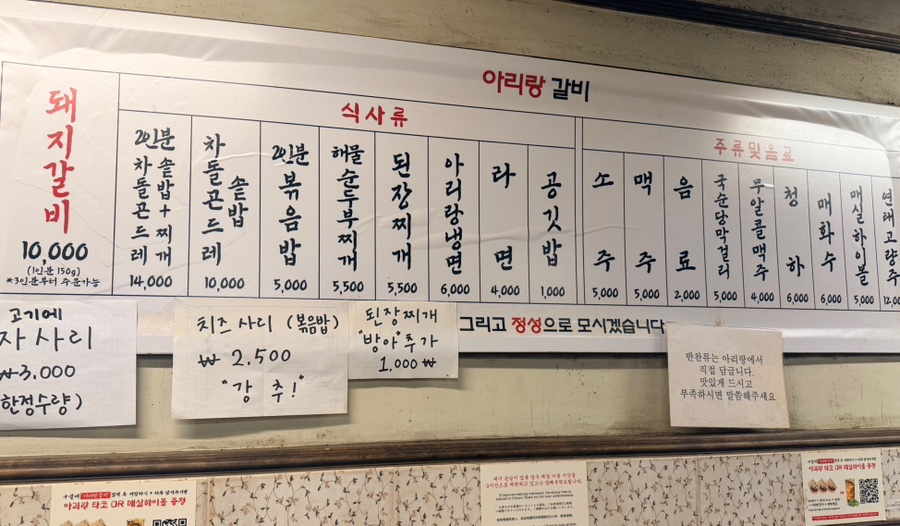 아리랑 갈비
돼지갈비
10,000
(1인분 150g)
*3인분부터 주문가능
식사류
2인분
차돌곤드레
솥밥+찌개
14,000
차돌곤드레
솥밥
10,000
2인분
볶음밥
5,000
해물순두부찌개
5,500
된장찌개
5,500
아리랑냉면
6,000
라면
4,000
공깃밥
1,000
주류및음료
소주
5,000
맥주
5,000
음료
2,000
국순당막걸리
5,000
무알콜맥주
4,000
청하
6,000
매화수
6,000
매실하이볼
5,000
연태고량주
12,00
그리고 정성으로 모시겠습니다
고기에
자사리
₩3.000
한정수량)
치즈 사리 (볶음밥)
₩ 2.500
"강추!"
된장찌개
"방아"추가
1.000 ₩
반찬류는 아리랑에서
직접 담급니다.
맛있게 드시고
부족하시면 말씀해주세요
아리랑 타코 OR 매실하이볼 증정
아리랑 타코 OR 매실하이볼 증정